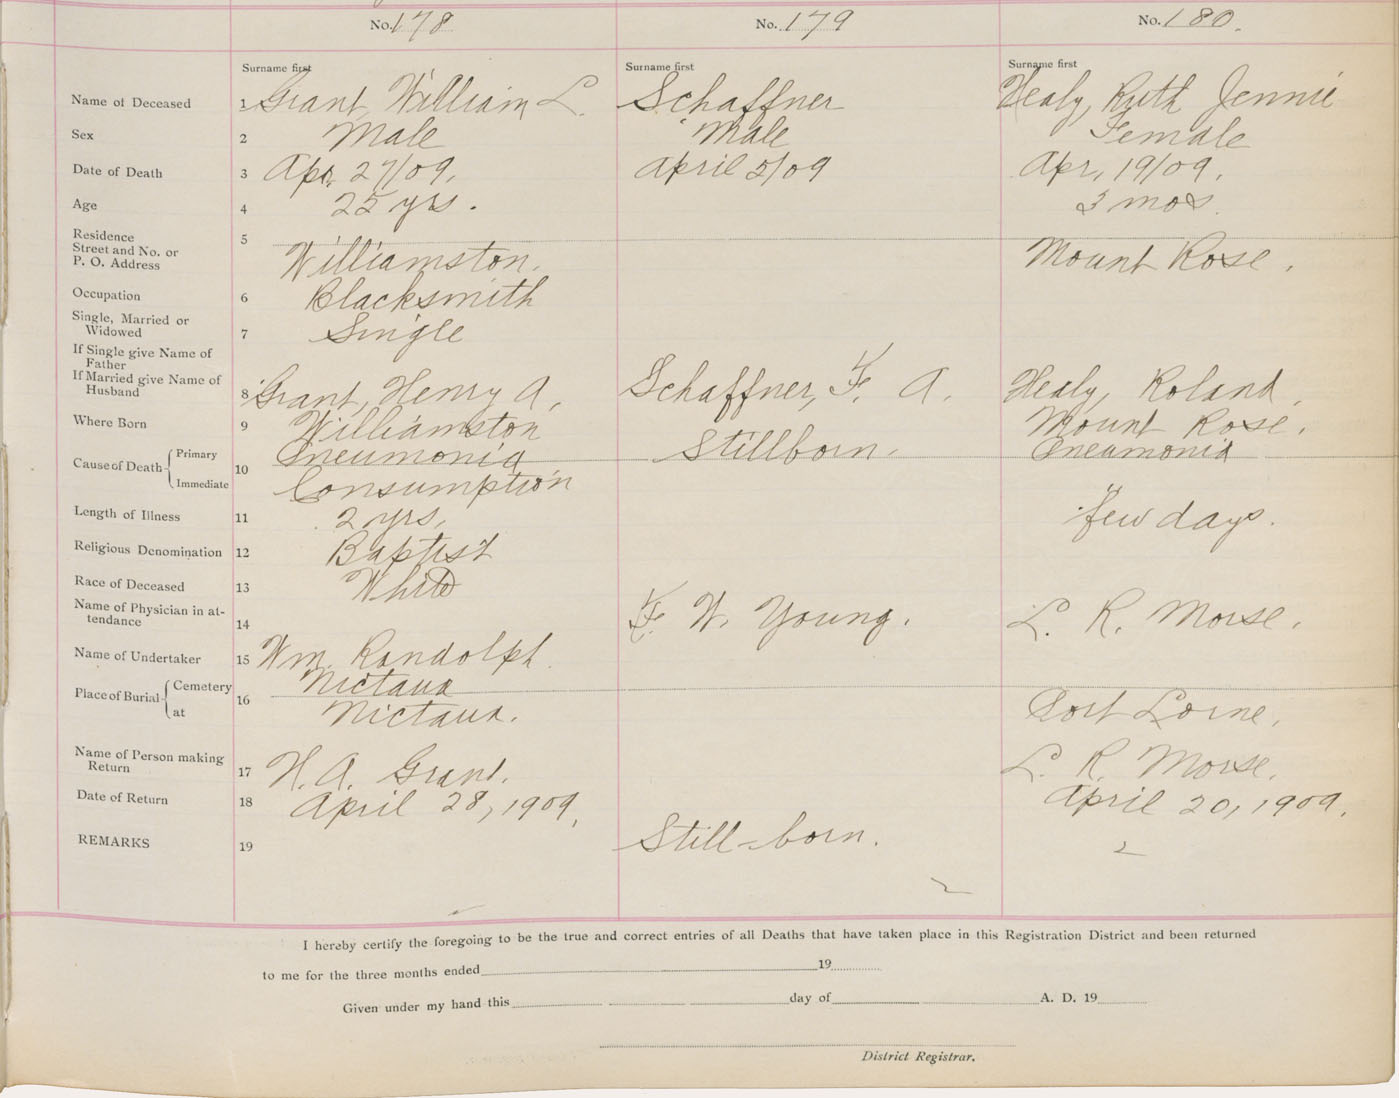 No. 178 No. 179 No. 180.
Surname first Surname first Surname first
Name of Deceased 1 Grant, William L. Schaffner Healy, Ruth Jennie
Sex 2 Male Male Female
Date of Death 3 Apr. 27/09. April 5/09 Apr, 19/09.
Age 4 25 yrs. 3 mos.
Residence
Street and No. or
P. O. Address 5 Williamston. Mount Rose.
Occupation 6 Blacksmith
Single, Married or
Widowed 7 Single
If Single give Name of
Father
If Married give Name of
Husband 8 Grant, Henry A, Schaffner, F. A. Healy, Roland.
Where Born 9 Williamston Mount Rose.
Cause of Death Primary 10 Pneumonia Stillborn. Pneumonia
Immediate Consumption
Length of Illness 11 2 yrs. few days.
Religious Denomination 12 Baptist
Race of Deceased 13 White
Name of Physician in at-
tendance 14 F. W. Young. L. R. Morse.
Name of Undertaker 15 Wm. Randolph.
Place of Burial Cemetery 16 Nictaux
at Nictaux. Port Lorne.
Name of Person making
Return 17 H. A. Grant. L. R. Morse.
Date of Return 18 April 28, 1909. April 20, 1909.
REMARKS 19 Still-born.
I hereby certify the foregoing to be the true and correct entries of all Deaths that have taken place in this Registration District and been returned
to me for the three months ended 19
Given under my hand this day of A. D. 19
District Registrar.